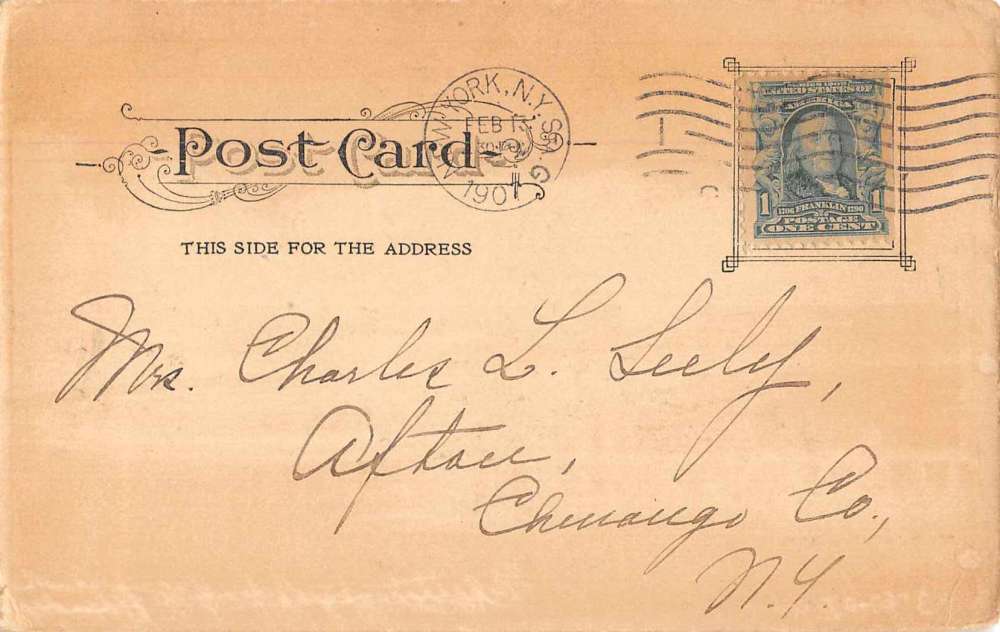 Post Card
THIS SIDE FOR THE ADDRESS
NEW YORK, N.Y. STA. G
FEB 13
190
UNITED STATES OF
AMERICA
1706 FRANKLIN 1790
1 POSTAGE 1
ONE CENT
Mrs. Charles L. Seely,
Afton,
Chenango Co.,
N.Y.